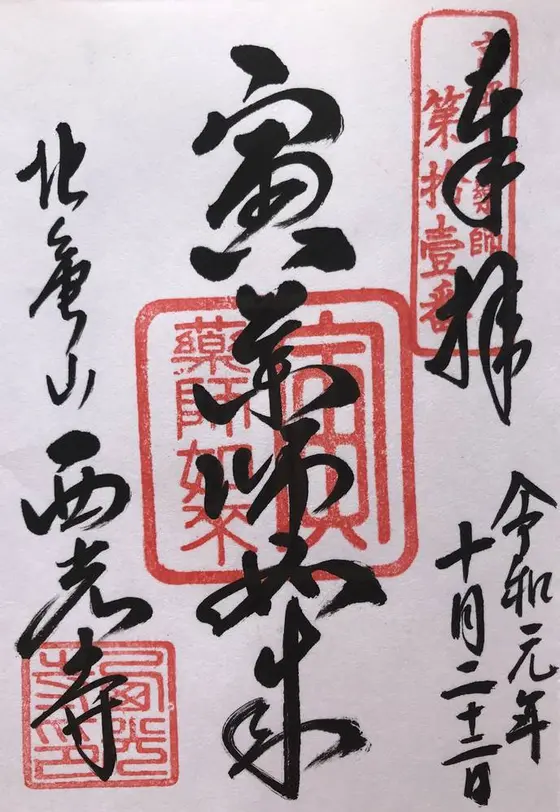 奉拝
第拾壹番
令和元年
十月二十二日
寅薬師如来
寅
藥師如来
北亀山 西光寺